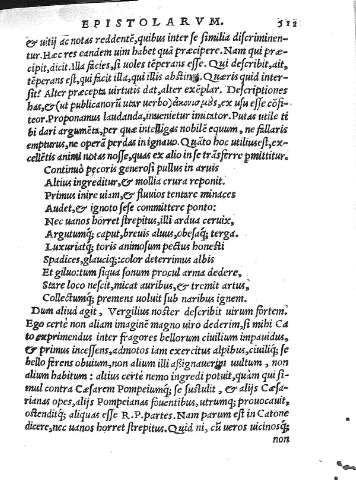 EPISTOLARVM. 512
& uitij ac notas reddentē, quibus inter se similia discriminen-
tur. Hæc res eandem uim habet quā præcipere. Nam qui præ-
cipit, dicit. Illa facies, si uoles tēperans esse. Qui describit, ait,
tēperans est, qui facit illa, qui illis abstinet. Quæris quid inter-
sit? Alter præcepta uirtutis dat, alter exēplar. Descriptiones
has, & (ut publicanorū utar uerbo) ex usu esse cōfi-
teor. Proponamus laudanda, inuenietur imitator. Putas utile ti
bi dari argumēta, per quæ intelligas nobilē equum, ne fallaris
empturus, ne operā perdas in ignauo. Quāto hoc utilius est, ex-
cellētis animi notas nosse, quas ex alio in se trāsferre pmittitur.
Continuò pecoris generosi pullus in aruis
Altius ingreditur, & mollia crura reponit.
Primus inire uiam, & fluuios tentare minaces
Audet, & ignoto sese committere ponto:
Nec uanos horret strepitus, illi ardua ceruix,
Argutumq; caput, breuis aluus, obesaq; terga.
Luxuriatq; toris animosum pectus honesti
Spadices, glauciq; color deterrimus albis
Et giluo: tum siqua sonum procul arma dedere,
Stare loco nescit, micat auribus, & tremit artus,
Collectumq; premens uoluit sub naribus ignem.
Dum aliud agit, Vergilius noster describit uirum fortem.
Ego certè non aliam imaginē magno uiro dederim, si mihi Ca
to exprimendus inter fragores bellorum ciuilium impauidus,
& primus incessens, admotos iam exercitus alpibus, ciuiliq; se
bello ferens obuium, non alium illi assignauerim uultum, non
alium habitum: altius certè nemo ingredi potuit, quàm qui si-
mul contra Cæsarem Pompeiumq; se sustulit, & alijs Cæsa-
rianas opes, alijs Pompeianas fouentibus, utrumq; prouocauit,
ostenditq; aliquas esse R.P. partes. Nam parum est in Catone
dicere, nec uanos horret strepitus. Quid ni, cū ueros uicinosq;
non